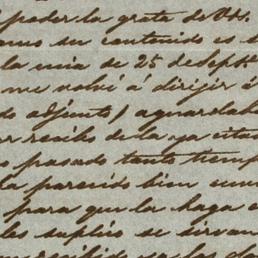 poder la grata de Vds.
como su contenido es
la mia de 25 de Sepbre
me volví á dirijir á
do adjunto / aguardaba
recibo de la ya cita
pasado tanto tiemp
ha parecido bien
para que la haga
les suplico se sirvan
recibido